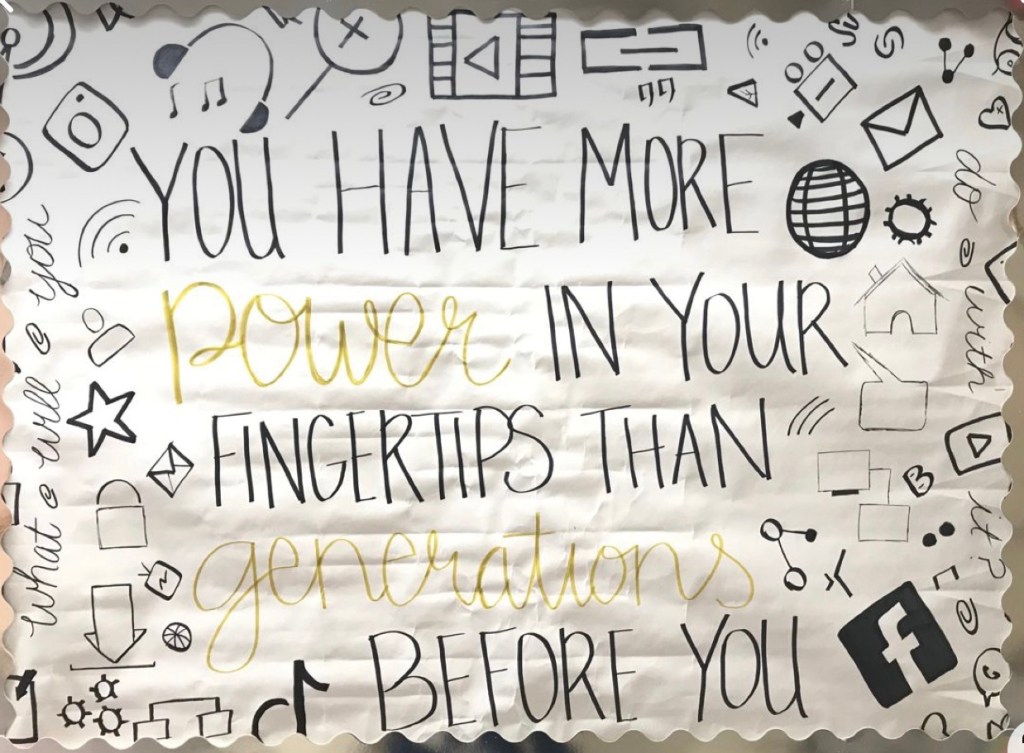 YOU HAVE MORE
power IN YOUR
FINGERTIPS THAN
generations
BEFORE YOU
What @ will @ you
do @ with
it?